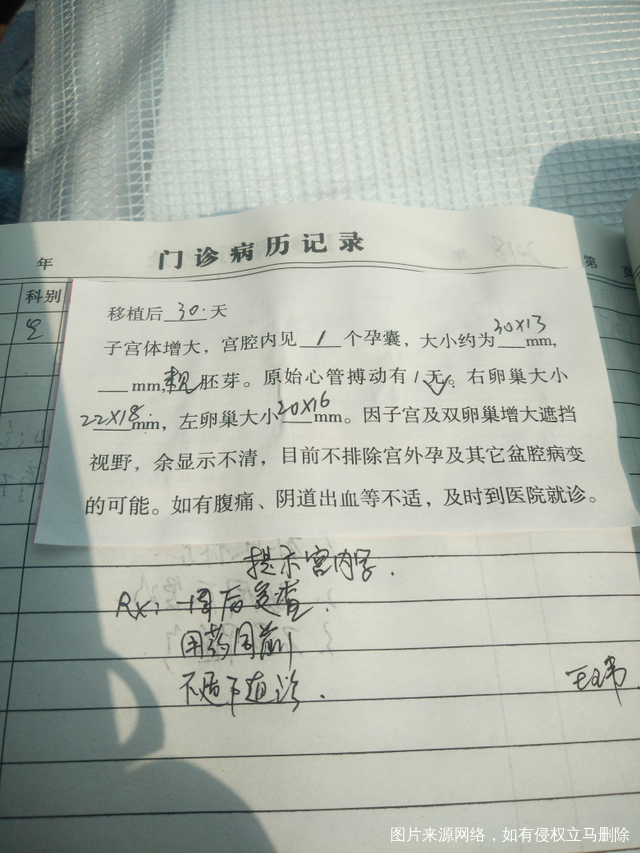 年 门诊病历记录 第 页
科别
移植后 30 天
子宫体增大，宫腔内见 1 个孕囊，大小约为 30×13 mm，
mm，未见胚芽。原始心管搏动有/无√。右卵巢大小
22×18 mm，左卵巢大小 20×16 mm。因子宫及双卵巢增大遮挡
视野，余显示不清，目前不排除宫外孕及其它盆腔病变
的可能。如有腹痛、阴道出血等不适，及时到医院就诊。
提示宫内孕.
Rx: 一周后复查.
用药同前
不适下随诊.
图片来源网络，如有侵权立马删除